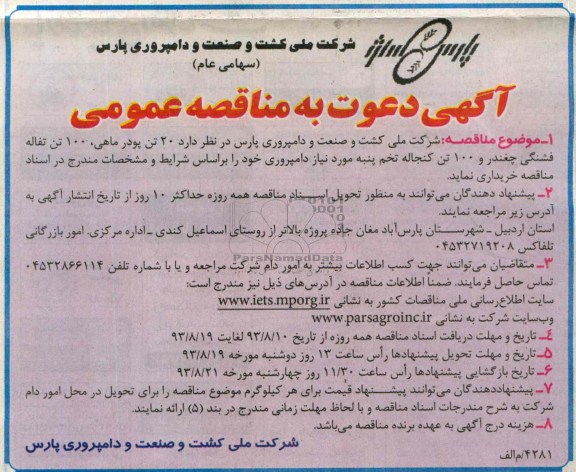 پارس
شرکت ملی کشت و صنعت و دامپروری پارس
(سهامی عام)
آگهی دعوت به مناقصه عمومی
۱ـ موضوع مناقصه: شرکت ملی کشت و صنعت و دامپروری پارس در نظر دارد ۲۰ تن پودر ماهی، ۱۰۰ تن تفاله
فشنگی چغندر و ۱۰۰ تن کنجاله تخم پنبه مورد نیاز دامپروری خود را براساس شرایط و مشخصات مندرج در اسناد
مناقصه خریداری نماید.
۲ـ پیشنهاد دهندگان می‌توانند به منظور تحویل اسناد مناقصه همه روزه حداکثر ۱۰ روز از تاریخ انتشار آگهی به
آدرس زیر مراجعه نمایند.
استان اردبیل ـ شهرستان پارس‌آباد مغان جاده پروژه بالاتر از روستای اسماعیل کندی ـ اداره مرکزی. امور بازرگانی
تلفاکس ۰۴۵۳۲۷۱۹۲۰۸
ParsNamadData
۳ـ متقاضیان می‌توانند جهت کسب اطلاعات بیشتر به امور دام شرکت مراجعه و یا با شماره تلفن ۰۴۵۳۲۸۶۶۱۱۴
تماس حاصل فرمایند. ضمناً اطلاعات مناقصه در آدرس‌های ذیل نیز مندرج است:
سایت اطلاع‌رسانی ملی مناقصات کشور به نشانی www.iets.mporg.ir
وب‌سایت شرکت به نشانی www.parsagroinc.ir
۴ـ تاریخ و مهلت دریافت اسناد مناقصه همه روزه از تاریخ ۹۳/۸/۱۰ لغایت ۹۳/۸/۱۹
۵ـ تاریخ و مهلت تحویل پیشنهادها رأس ساعت ۱۳ روز دوشنبه مورخه ۹۳/۸/۱۹
۶ـ تاریخ بازگشایی پیشنهادها رأس ساعت ۱۱/۳۰ روز چهارشنبه مورخه ۹۳/۸/۲۱
۷ـ پیشنهاددهندگان می‌توانند پیشنهاد قیمت برای هر کیلوگرم موضوع مناقصه را برای تحویل در محل امور دام
شرکت به شرح مندرجات اسناد مناقصه و با لحاظ مهلت زمانی مندرج در بند (۵) ارائه نمایند.
۸ـ هزینه درج آگهی به عهده برنده مناقصه می‌باشد.
شرکت ملی کشت و صنعت و دامپروری پارس
۴۲۸۱/م‌الف